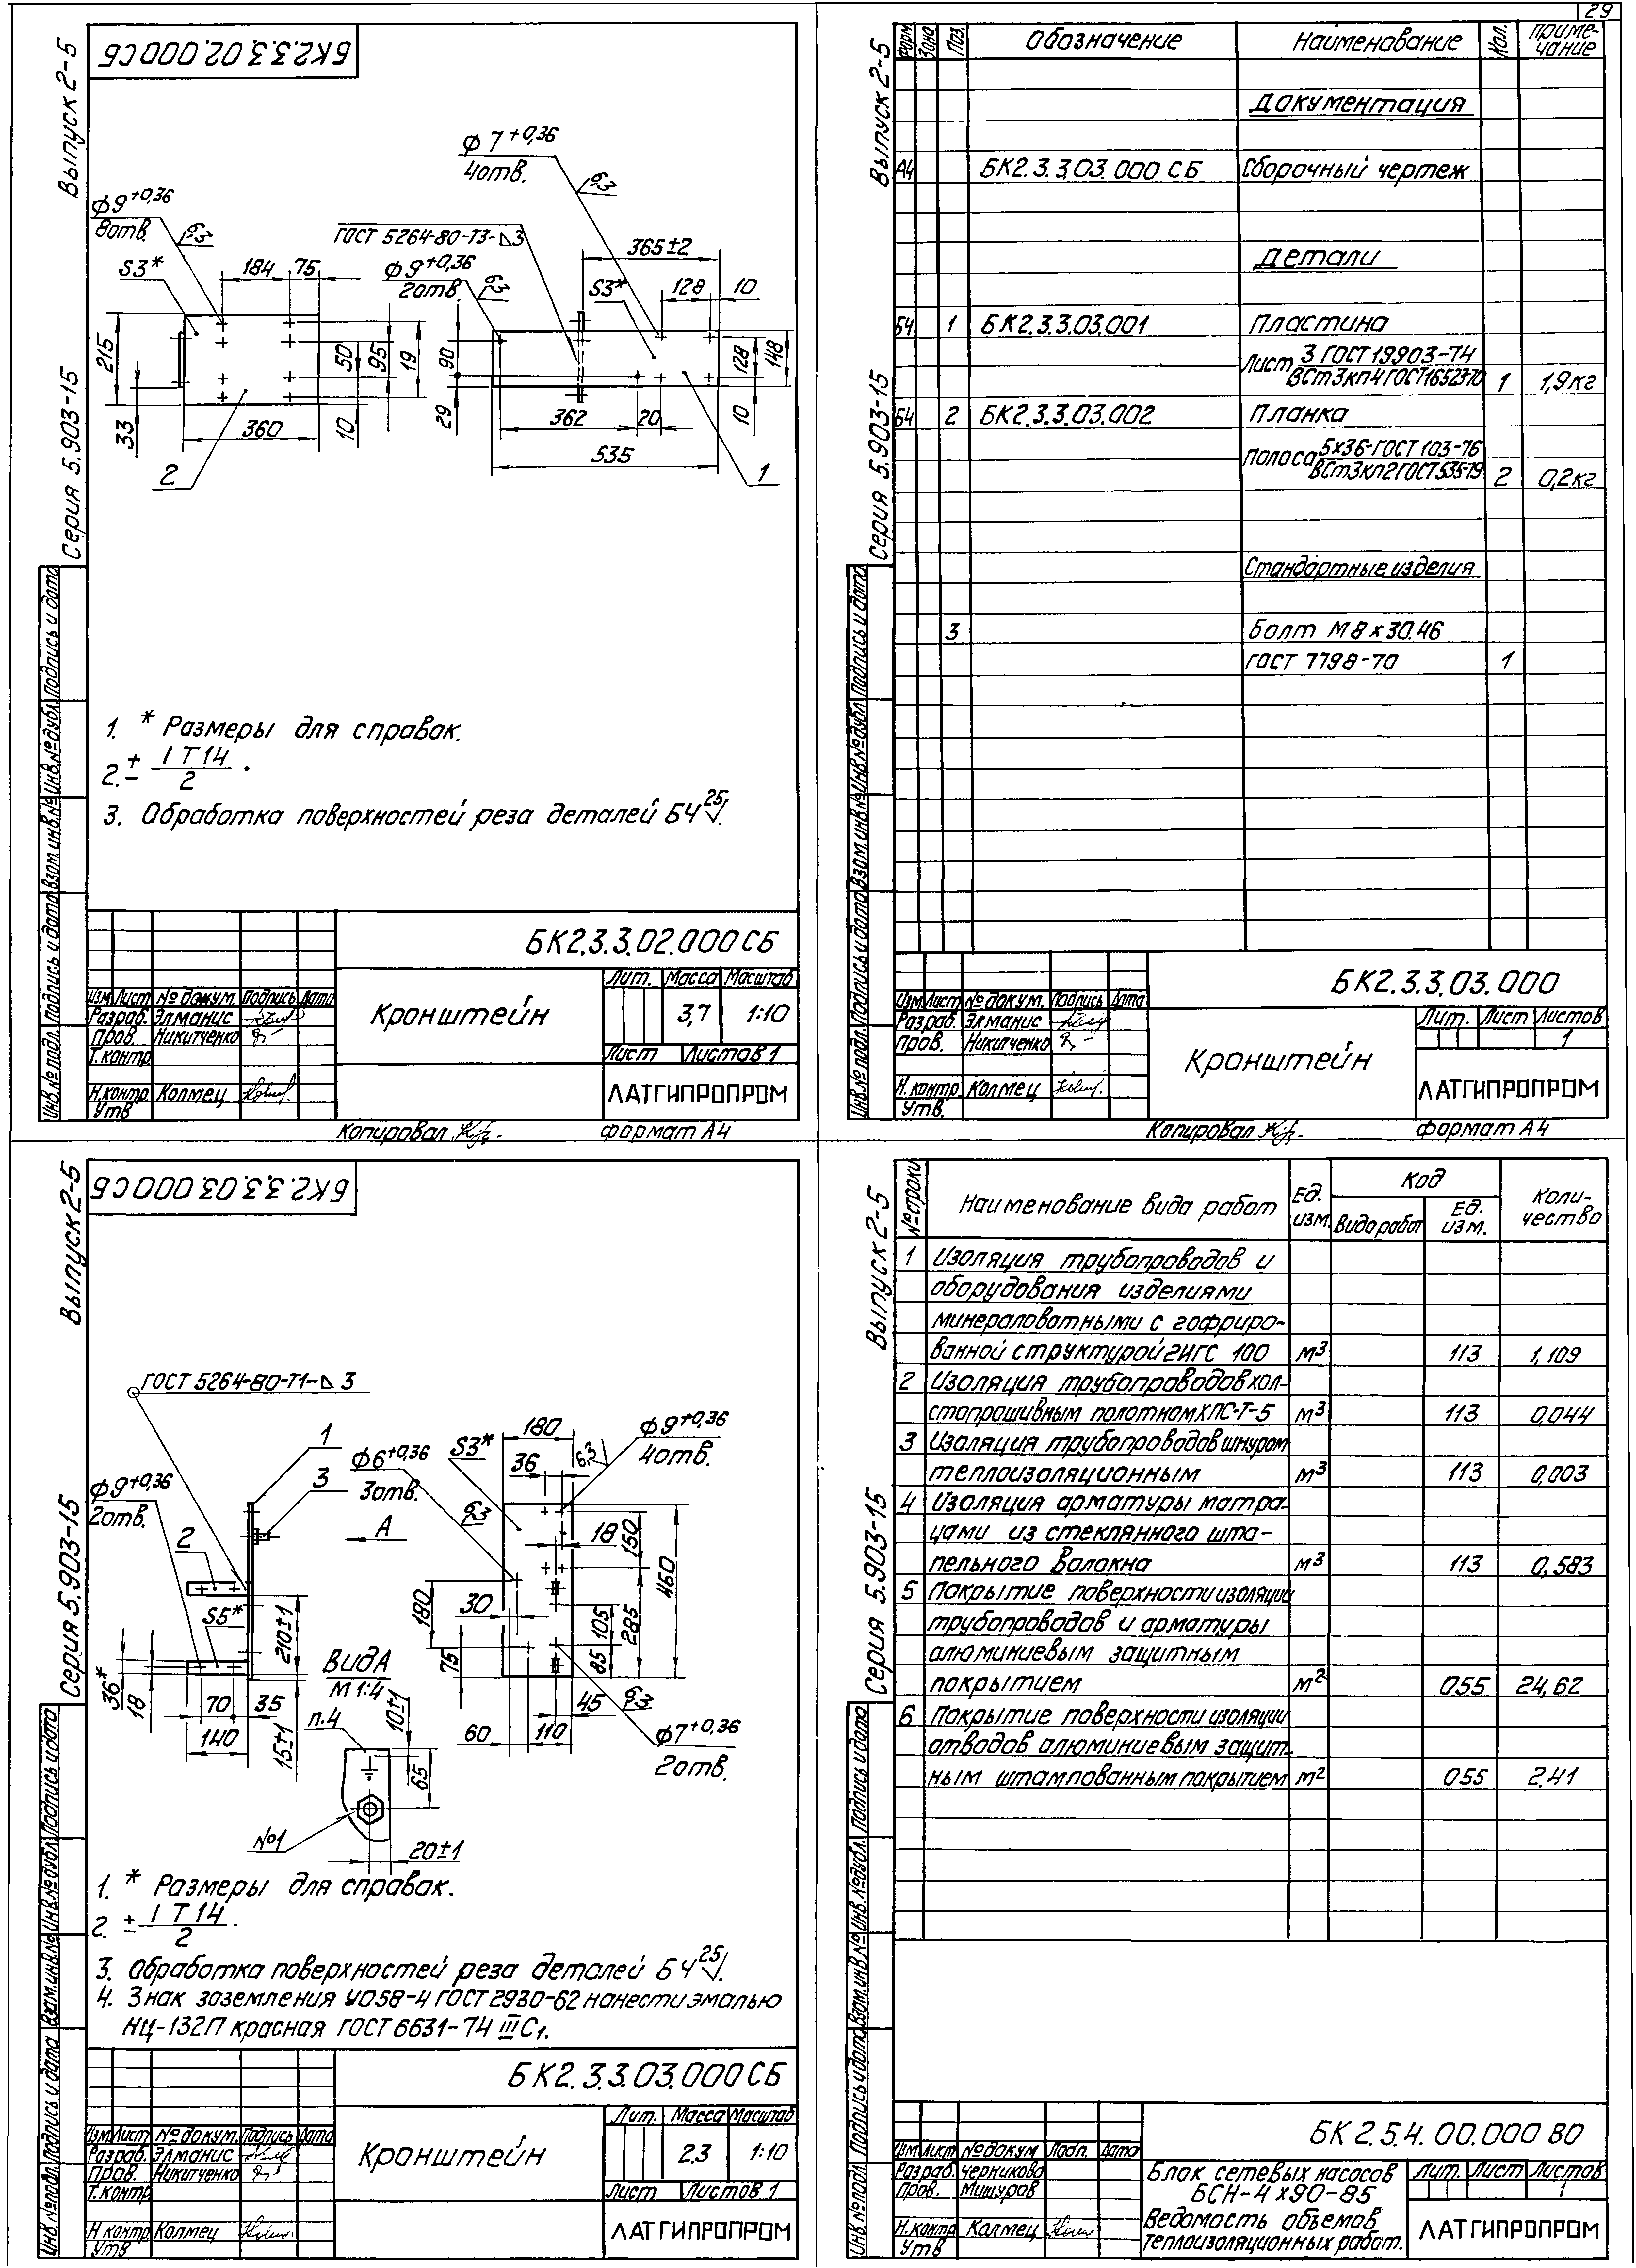 29
БК2.3.3.02.000СБ
Выпуск 2-5
Серия 5.903-15
ф9+0,36
8отв.
6,3
S3*
184
75
215
33
50
95
19
10
360
2
ф7+0,36
4отв.
6,3
ГОСТ 5264-80-Т3-⊿3
ф9+0,36
2отв.
6,3
365±2
S3*
128
10
90
29
128
148
10
362
20
535
1
1. * Размеры для справок.
2. ± IT14/2.
3. Обработка поверхностей реза деталей БЧ 25√.
Инв.№подл. Подпись и дата Взам.инв.№ Инв.№дубл. Подпись и дата
БК2.3.3.02.000СБ
Изм Лист № докум. Подпись Дата
Разраб. Элманис
Пров. Никитченко
Т.контр.
Н.контр. Колмец
Утв.
Кронштейн
Лит. Масса Масштаб
3,7 1:10
Лист Листов 1
ЛАТГИПРОПРОМ
Копировал
формат А4
Выпуск 2-5
Серия 5.903-15
Форм. Зона Поз. Обозначение Наименование Кол. Приме-
чание
Документация
А4 БК2.3.3.03.000 СБ Сборочный чертеж
Детали
Б4 1 БК2.3.3.03.001 Пластина
Лист 3 ГОСТ 19903-74
ВСт3кп4 ГОСТ16523-70 1 1,9кг
Б4 2 БК2.3.3.03.002 Планка
Полоса 5х36-ГОСТ 103-76
ВСт3кп2 ГОСТ535-79 2 0,2кг
Стандартные изделия
3 Болт М8х30.46
ГОСТ 7798-70 1
Инв.№подл. Подпись и дата Взам.инв.№ Инв.№дубл. Подпись и дата
БК2.3.3.03.000
Изм Лист № докум. Подпись Дата
Разраб. Элманис
Пров. Никитченко
Н.контр. Колмец
Утв.
Кронштейн
Лит. Лист Листов
1
ЛАТГИПРОПРОМ
Копировал
формат А4
БК2.3.3.03.000СБ
Выпуск 2-5
Серия 5.903-15
ГОСТ 5264-80-Т1-⊿3
1
3
ф9+0,36
2отв.
2
А
S5*
210±1
36*
18
70
35
140
15±1
Вид А
М 1:4
п.4
10±1
65
№1
20±1
ф6+0,36
3отв.
6,3
S3*
180
36
6,3
ф9+0,36
4отв.
18
150
460
30
180
105
285
75
85
45
6,3
60
110
ф7+0,36
2отв.
1. * Размеры для справок.
2. ± IT14/2.
3. Обработка поверхностей реза деталей БЧ 25√.
4. Знак заземления У058-4 ГОСТ 2930-62 нанести эмалью
НЦ-132П красная ГОСТ 6631-74 III С1.
Инв.№подл. Подпись и дата Взам.инв.№ Инв.№дубл. Подпись и дата
БК2.3.3.03.000СБ
Изм Лист № докум. Подпись Дата
Разраб. Элманис
Пров. Никитченко
Т.контр.
Н.контр. Колмец
Утв
Кронштейн
Лит. Масса Масштаб
2.3 1:10
Лист Листов 1
ЛАТГИПРОПРОМ
Выпуск 2-5
Серия 5.903-15
№ строки Наименование вида работ Ед.
изм. Код Коли-
чество
Вида работ Ед.
изм.
1 Изоляция трубопроводов и
оборудования изделиями
минераловатными с гофриро-
ванной структурой 2ИГС 100 м3 113 1,109
2 Изоляция трубопроводов хол-
стопрошивным полотном ХПС-Т-5 м3 113 0,044
3 Изоляция трубопроводов шнуром
теплоизоляционным м3 113 0,003
4 Изоляция арматуры матра-
цами из стеклянного шта-
пельного волокна м3 113 0,583
5 Покрытие поверхности изоляции
трубопроводов и арматуры
алюминиевым защитным
покрытием м2 055 24,62
6 Покрытие поверхности изоляции
отводов алюминиевым защит-
ным штампованным покрытием м2 055 2.41
Инв.№подл. Подпись и дата Взам.инв.№ Инв.№дубл. Подпись и дата
БК 2.5.4.00.000 ВО
Изм Лист № докум. Подп. Дата
Разраб. Черникова
Пров. Мишуров
Н.контр. Колмец
Утв
Блок сетевых насосов
БСН-4х90-85
Ведомость объемов
теплоизоляционных работ.
Лит. Лист Листов
1
ЛАТГИПРОПРОМ